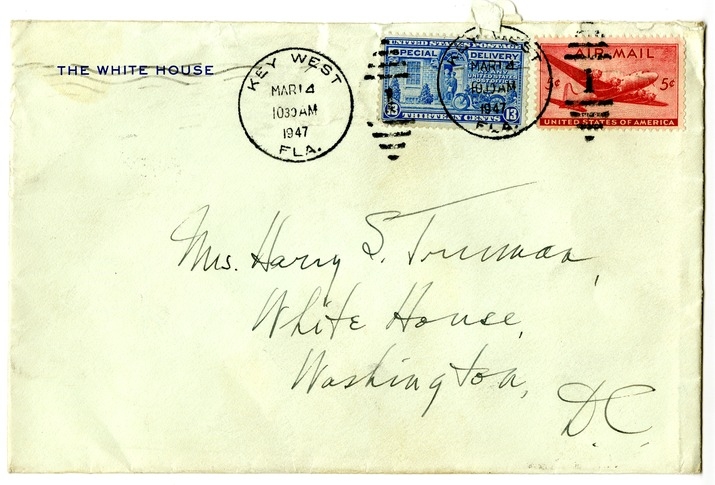 THE WHITE HOUSE
KEY WEST
MAR 14
1030 AM
1947
FLA.
UNITED STATES POSTAGE
SPECIAL DELIVERY
13 THIRTEEN CENTS 13
KEY WEST
MAR 14
1030 AM
1947
FLA.
1
AIR MAIL
5¢ 5¢
UNITED STATES OF AMERICA
1
Mrs. Harry S. Truman,
White House,
Washington,
D.C.